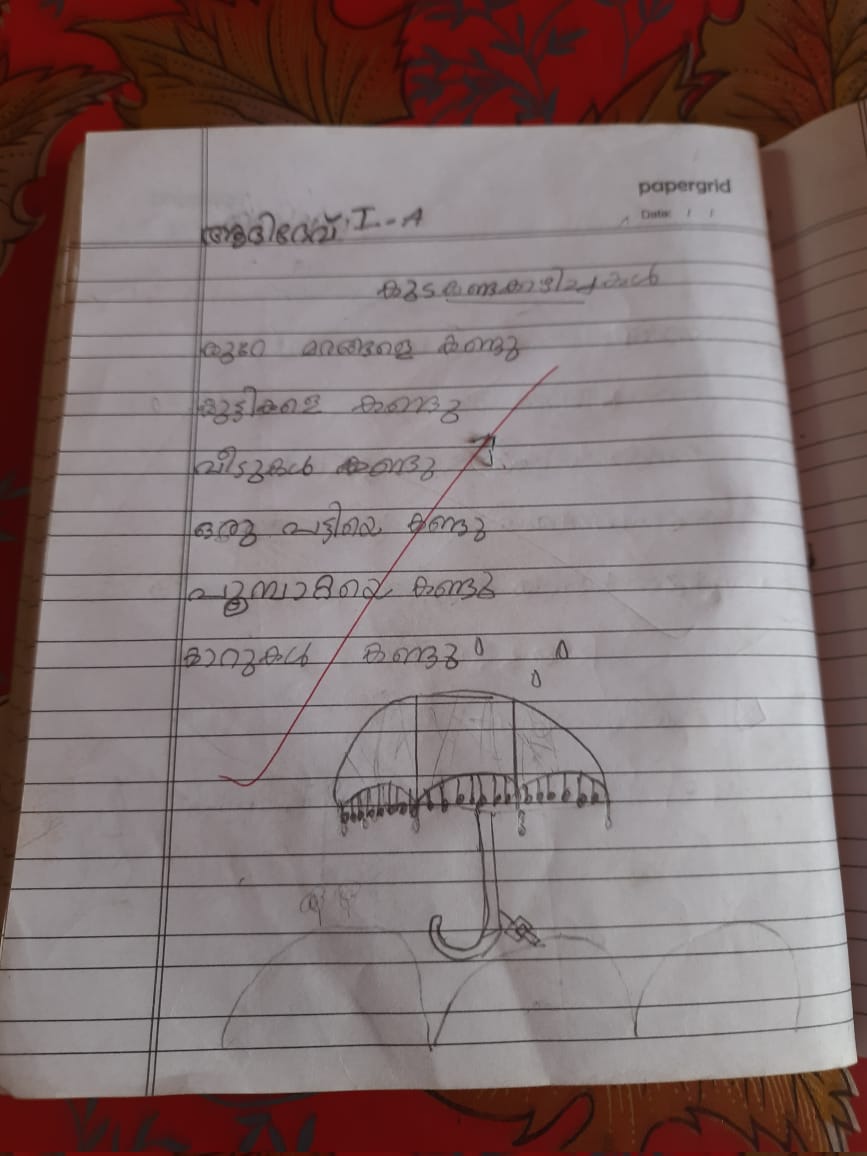 papergrid
Date: / /
ആദിദേവ് I - A
കുട കണ്ട കാഴ്ചകൾ
കുറേ മരങ്ങളെ കണ്ടു
കുട്ടികളെ കണ്ടു
വീടുകൾ കണ്ടു
ഒരു പട്ടിയെ കണ്ടു
പൂമ്പാറ്റയെ കണ്ടു
കാറുകൾ കണ്ടു